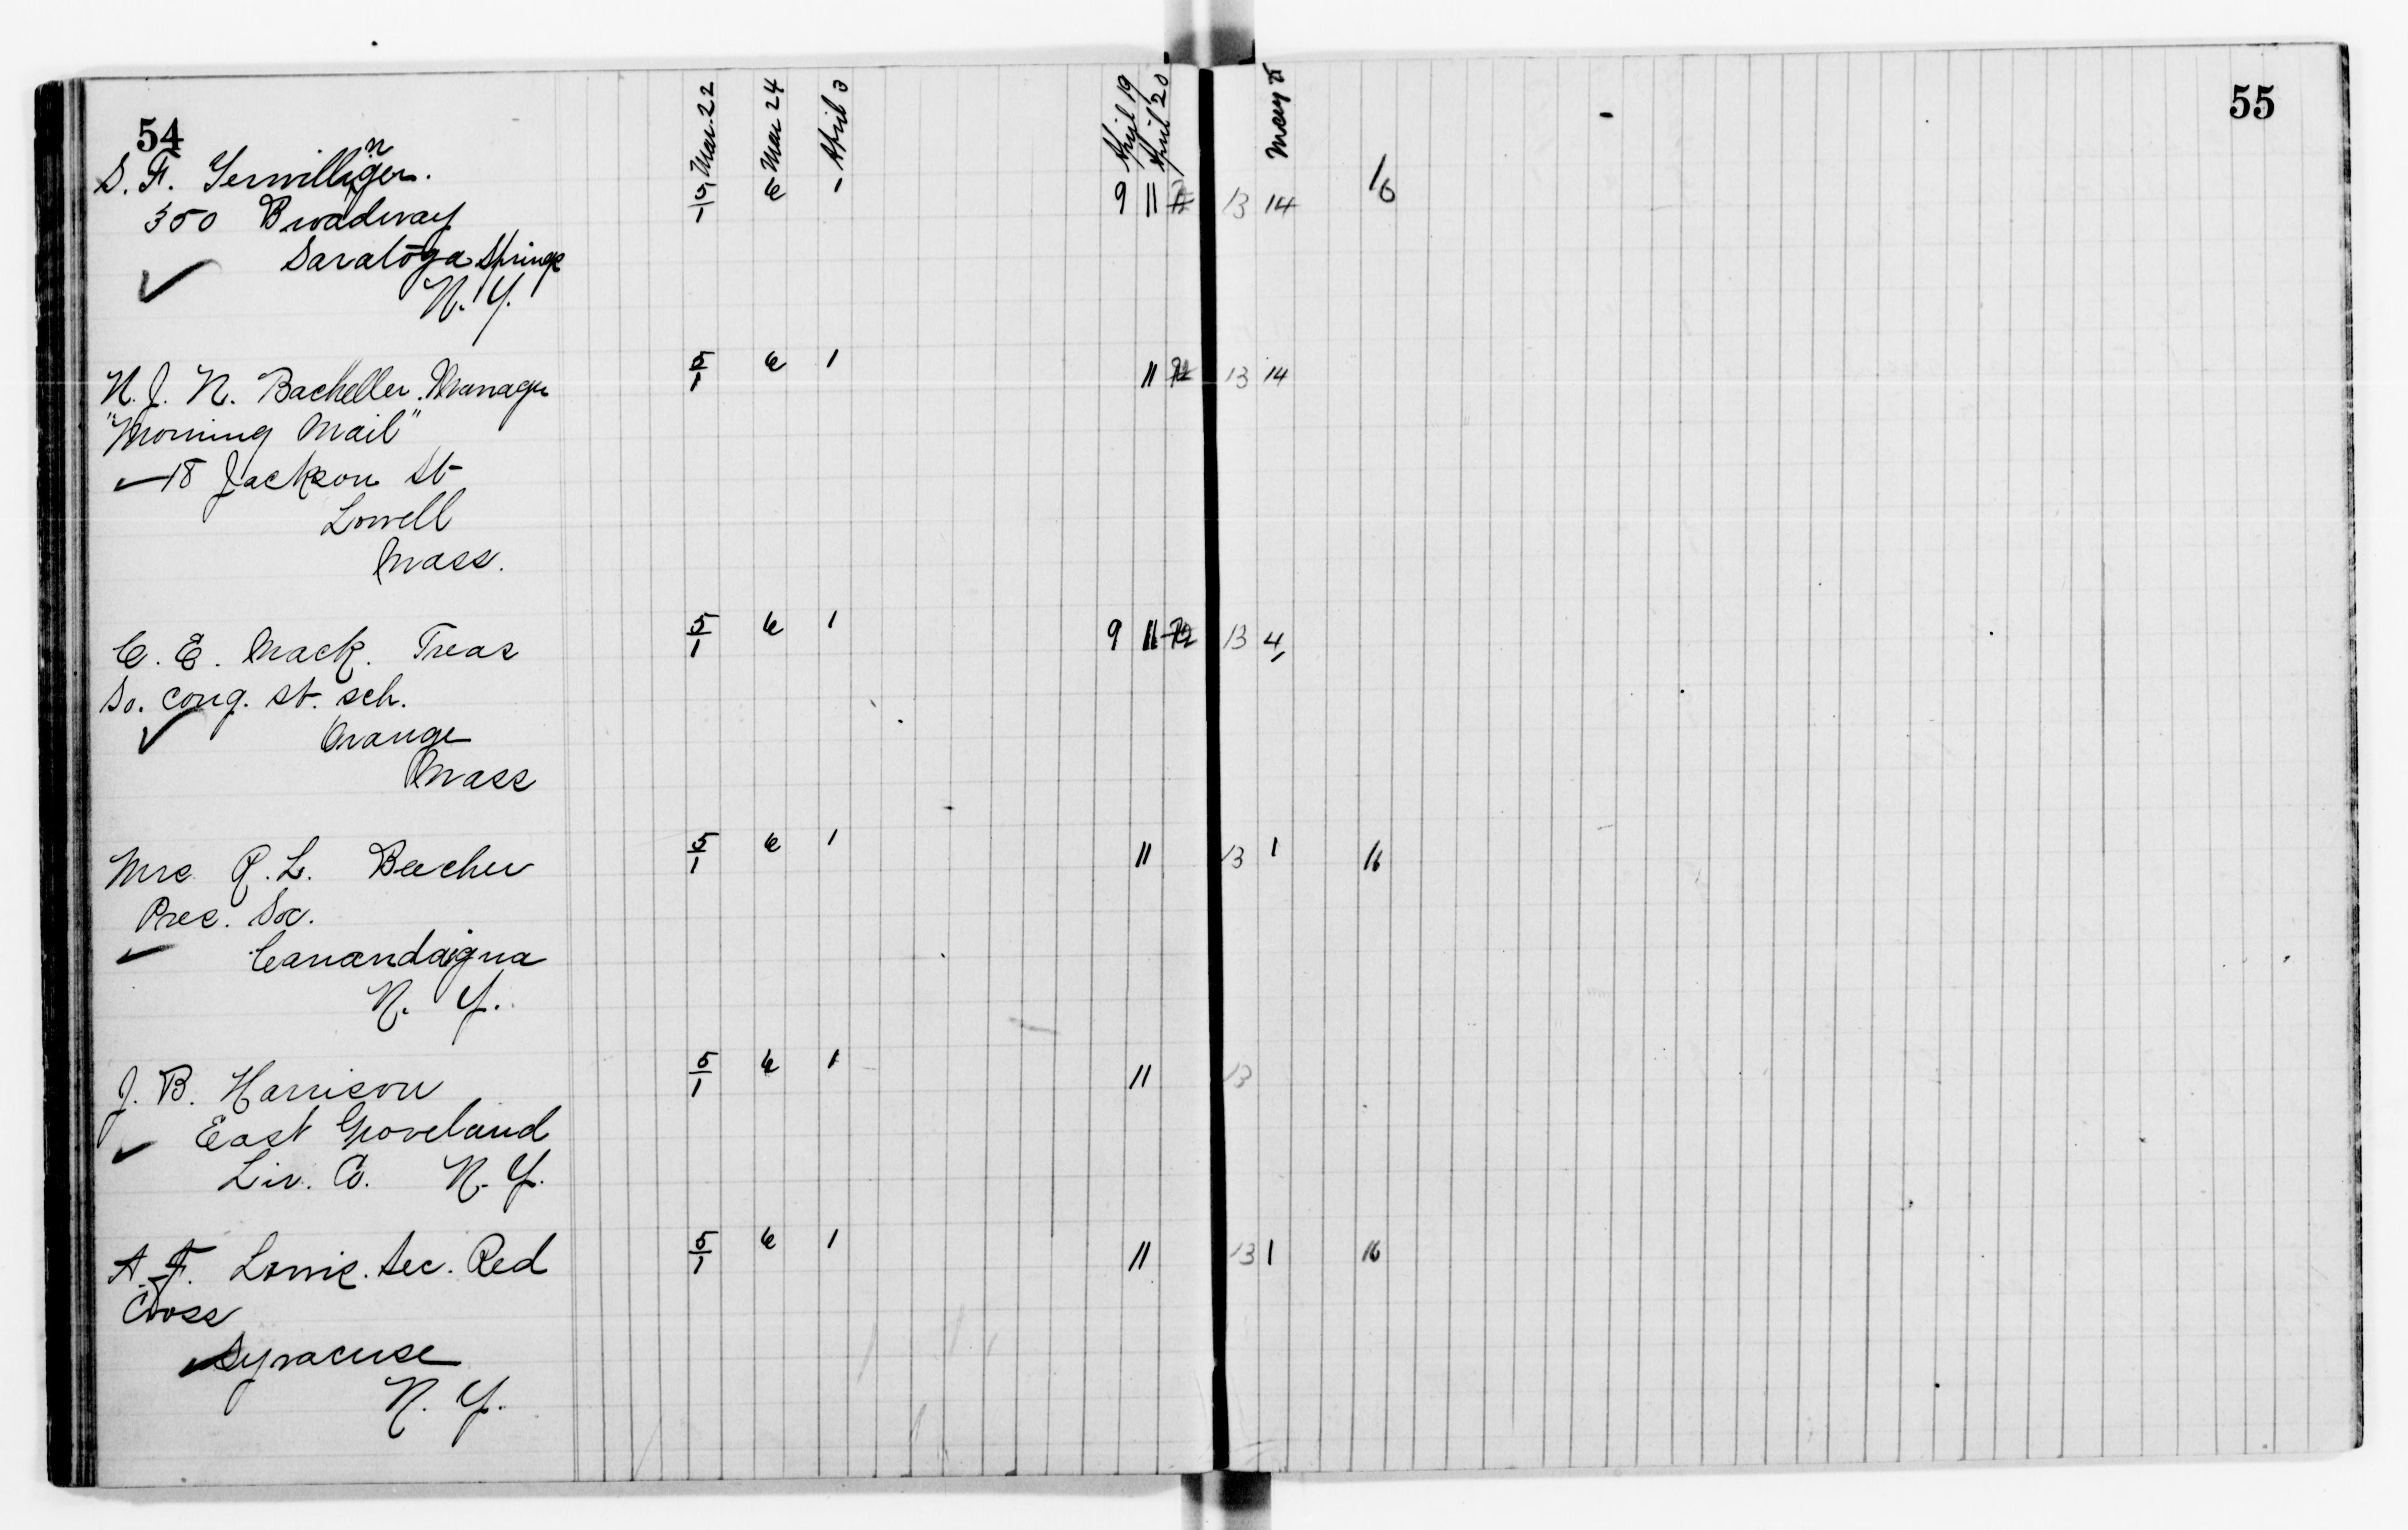 54
55
Mar. 22
Mar 24
April 3
April 19
April 20
May 5
S. F. Terwilliger.
n
5/1 6 1 9 11 13 14 16
350 Broadway
Saratoga Springs
N. Y.
N. J. N. Bacheller. Manager
5/1 6 1 11 13 14
"Morning Mail"
18 Jackson St
Lowell
Mass.
C. E. Mack. Treas
5/1 6 1 9 11 13 4
So. Cong. st. sch.
Orange
Mass
Mrs R. L. Beecher
5/1 6 1 11 13 1 16
Pres. Soc.
Canandaigua
N. Y.
J. B. Harrison
5/1 6 1 11 13
East Groveland
Liv. Co. N. Y.
A. F. Lewis. Sec. Red
5/1 6 1 11 13 1 16
Cross
Syracuse
N. Y.